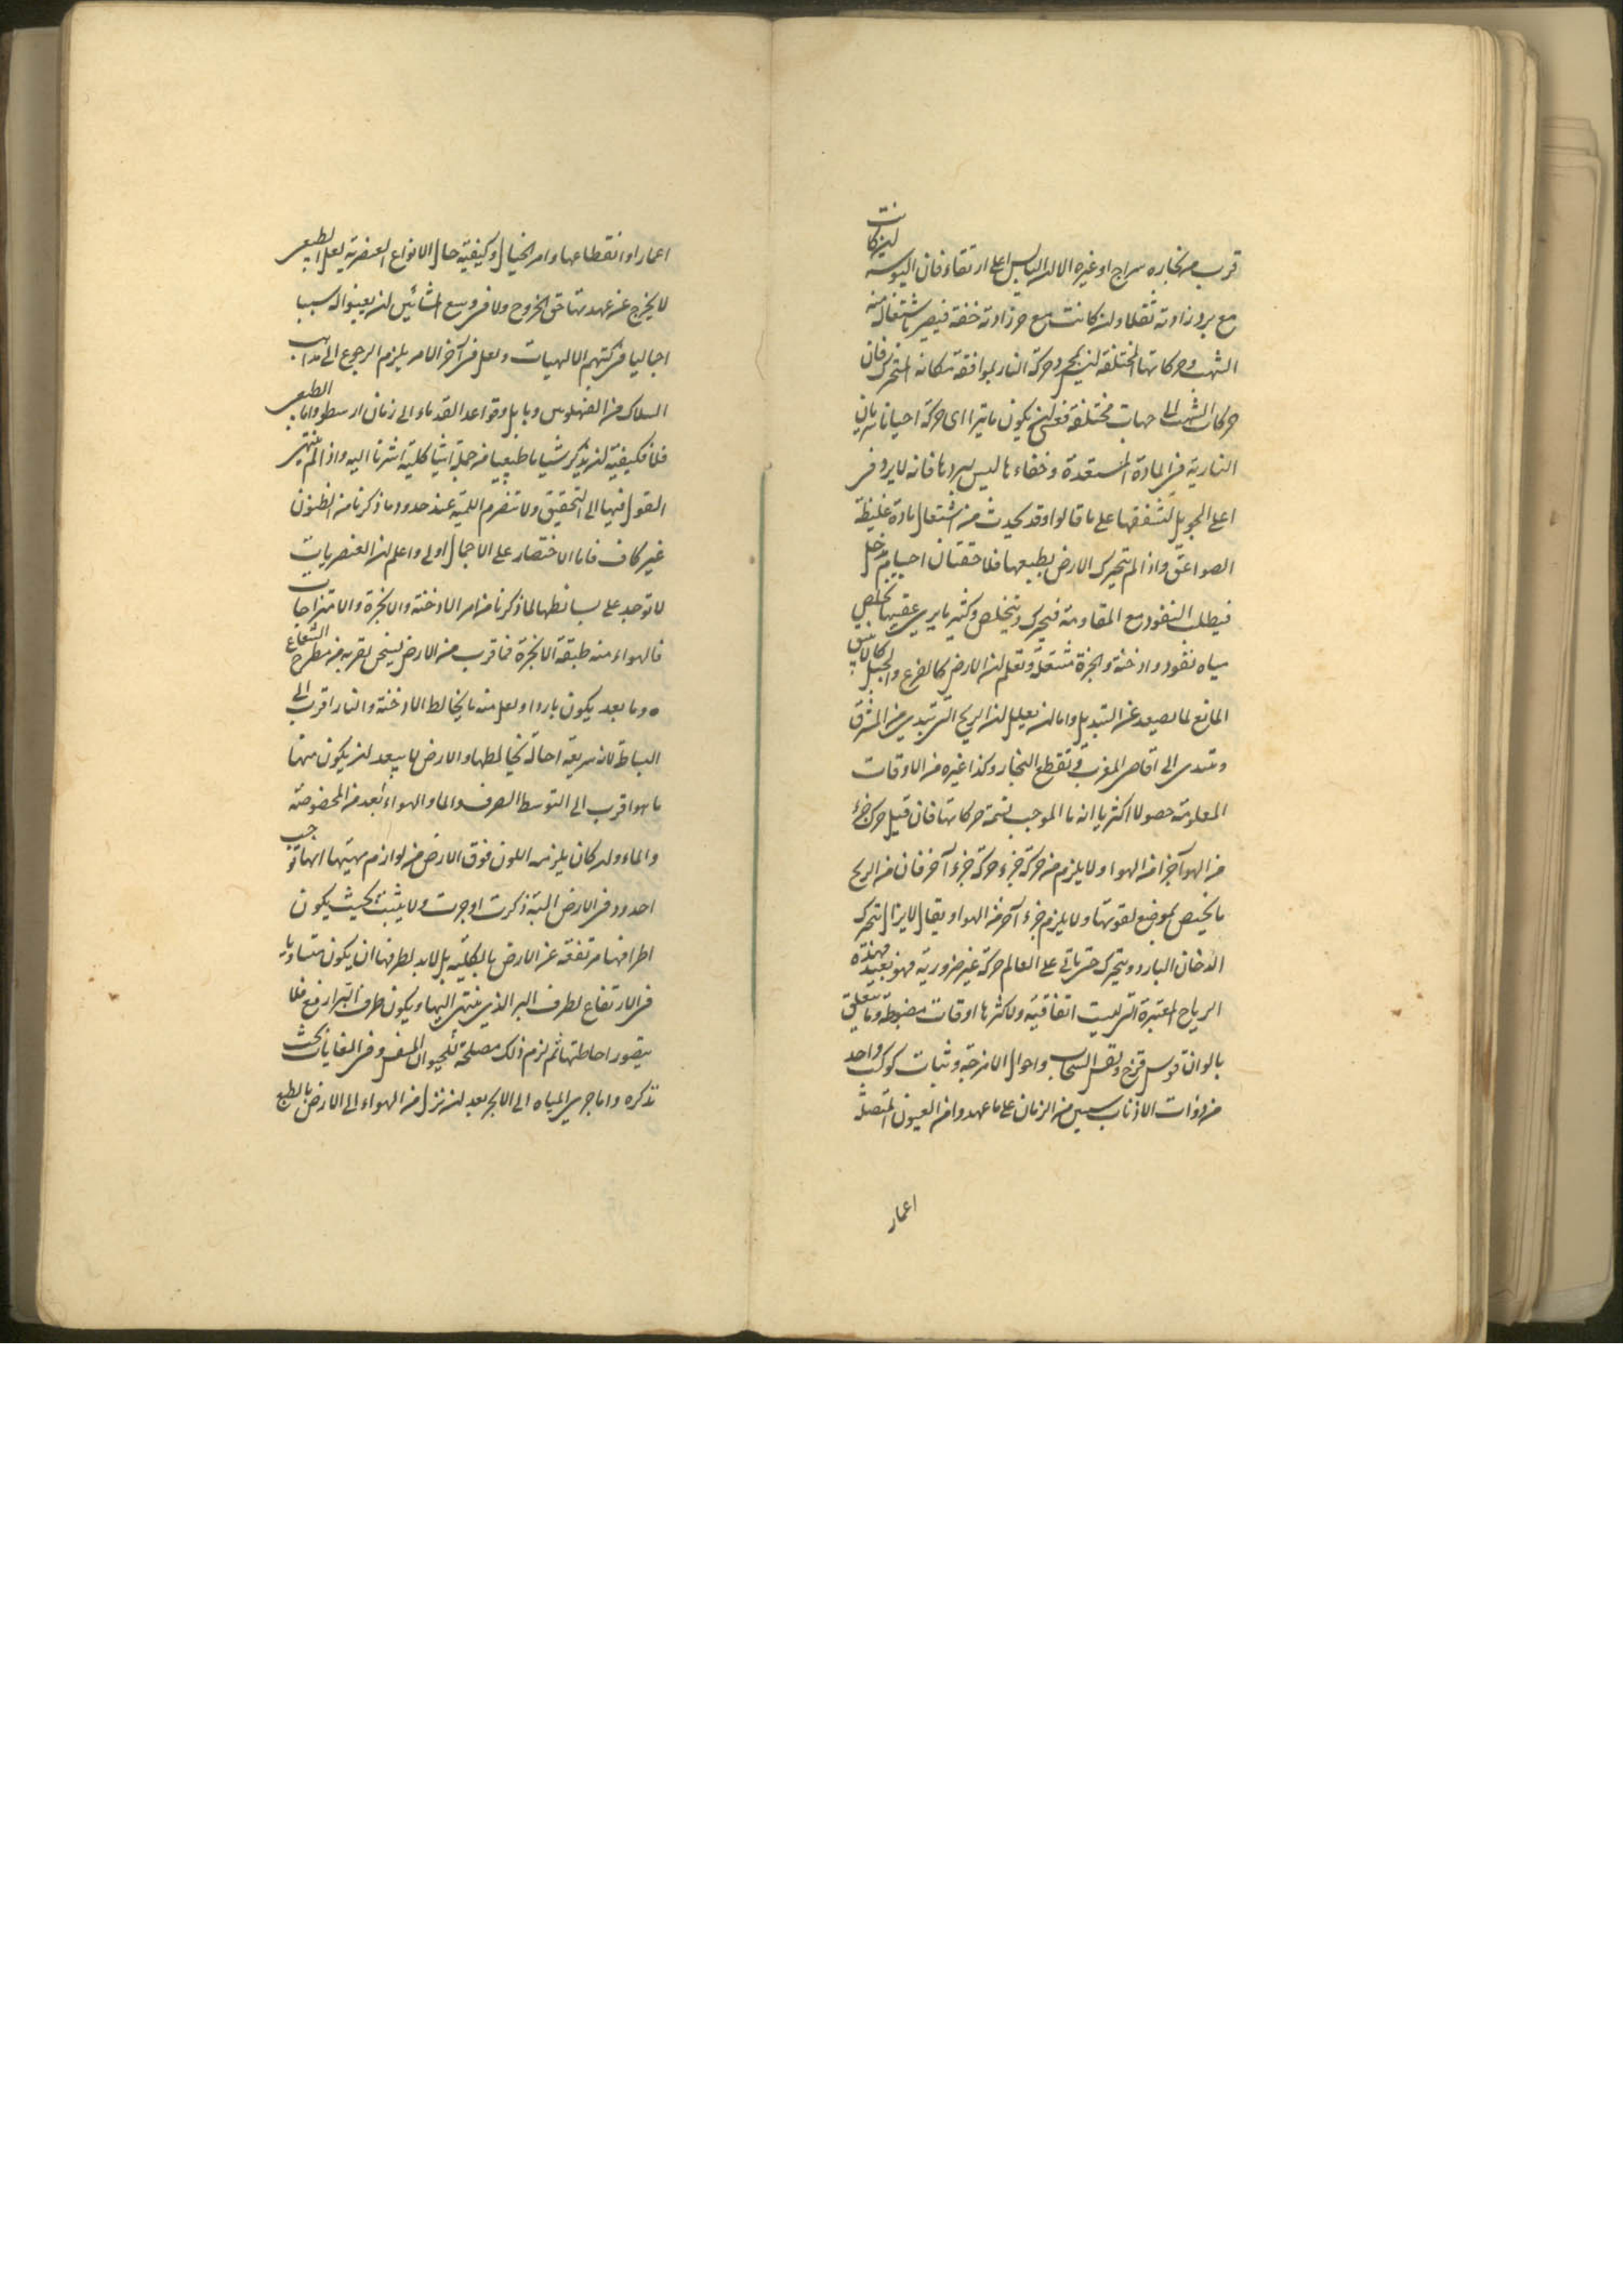 قرب من بخاره سراج او غيره الا ان اليابس اعلى ارتقاء فان اليبوسة ان كانت
مع برد زادته ثقلا وان كانت مع حر زادته خفة فيصير اشتغاله منه
الشهب وحركاتها المختلفة ليس بمجرد حركة النار لموافقة مكانه المتحرك فان
حركات الشهب الى جهات مختلفة فعسى ان يكون ما يترا اى حركة احيانا سريان
النارية فى المادة المستعدة وخفاءها ليس ببردها فانه لا برد فى
اعلى الجو بل لتشففها على ما قالوا وقد يحدث من اشتعال مادة غليظة
الصواعق واذا لم تتحرك الارض بطبعها فلاحتقان اجسام تدخل
فيطلب النفوذ مع المقاومة فيحرك ويتخلص وكثير ما يرى عقيبها تخلص
مياه نفوذ وادخنة وابخرة مشتعلة وتعلم ان الارض كالقرع والجبل كالانبيق
المانع لما يصعد عن التبديل واما ان يعلل ان الريح التى تبتدى من المشرق
وتتعدى الى اقاصى المغرب وتقطع البخار وكذا غيره من الاوقات
المعلومة حصولا اكثريا انه ما الموجب لتتمة حركاتها فان قيل حرك جزء
من الهوا جزا من الهوا ولا يلزم من حركة جزء حركة جزء آخر فان من الريح
ما يختص بموضع لقوتها ولا يلزم جزء آخر من الهوا ويقال لا يزال تتحرك
الدخان البارد ويتحرك حتى ياتى على العالم حركة غير ضرورية فهو بعيد فهذه
الرياح المعتبرة التى ليست اتفاقية ولاكثرها اوقات مضبوطة وما يتعلق
بالوان قوس قزح ولقس السحاب واحوال الامزجة وثبات كوكب واحد
من ذوات الاذناب سنين من الزمان على ما عهدوا من العيون المتصلة
اعمار
اعمارا وانقطاعها وامر الخيال وكيفية حال الانواع العنصرية لعل الطبيعى
لا يخرج عن عهدتها حق الخروج ولا فى وسع المشائين ان يعينوا له سببا
اجماليا فى كتبهم الالهيات ولعل فى آخر الامر يلزم الرجوع الى مذاهب
السلاك من الفهلوس وبابل وقواعد القدماء الى زمان ارسطو واما الطبيعى
فلا فكيفية ان يذكر شيئا ما طبيعيا من جملة اشيا كلية اشرنا اليه واذا لم ينتهى
القول فيها الى التحقيق ولا تنصرم اللمية عند حدود ما ذكرنا من الظنون
غير كاف فاما الاختصار على الاجمال اولى واعلم ان العنصريات
لا توجد على بسائطها لما ذكرنا من امر الادخنة والابخرة والامتزاجات
فالهواء منه طبقة الابخرة فما قرب من الارض يسخن لقربه من مطرح الشعاع
ه وما بعد يكون باردا ولعل منه ما يخالط الادخنة والنار اقرب الى
البساطة لان سريعة احالة يخالطها والارض لا يبعد ان يكون منها
ما هو اقرب الى التوسط الصرف والما والهواء ابعد من المحضوضة
والماء وان كان يلزمه اللون فوق الارض من لوازم مهيتها انها توجب
احدود فى الارض البتة ذكرت اوجرت ولا يثبت بحيث يكون
اطرافها مرتفعة عن الارض بالكلية بل لا بد لطرفها ان يكون متساويا
فى الارتفاع لطرف البر الذى ينتهى اليها ويكون طرف البر ارفع فلا
يتصور احاطتها ثم لزم ذلك مصلحة للحيوان المتنفس وفى الغايات بحث
نذكره واما جرى المياه الى الابحر بعد ان نزل من الهواء الى الارض بالطبع